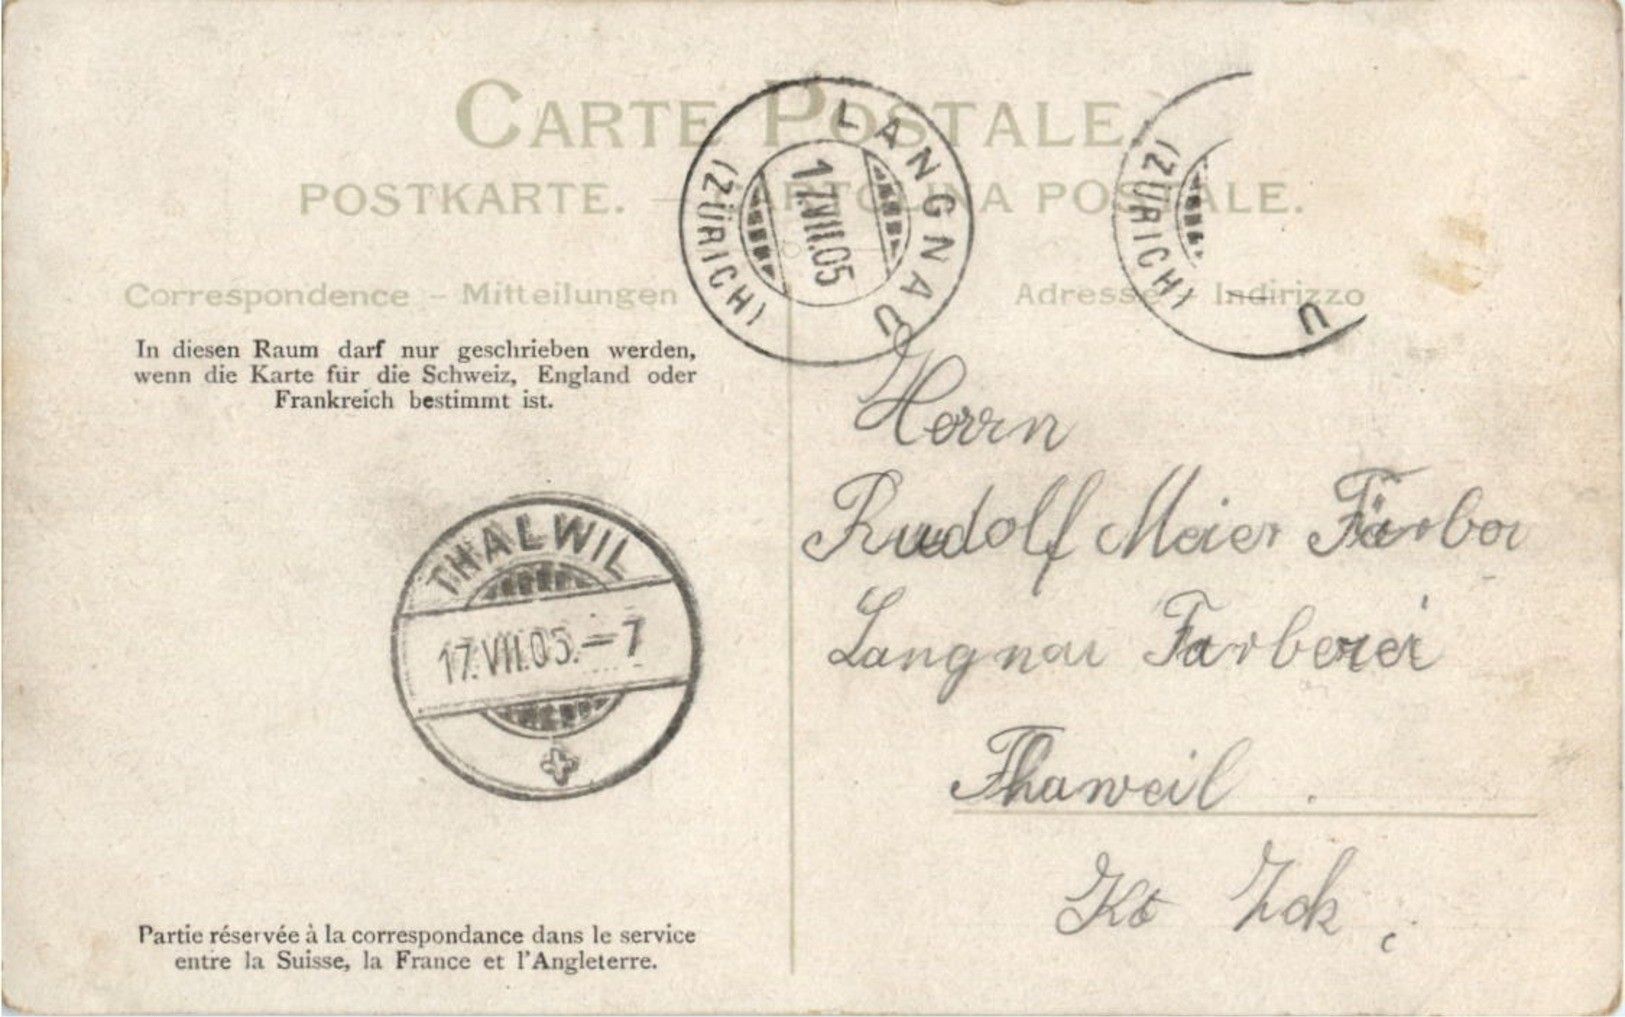 CARTE POSTALE.
POSTKARTE. – CARTOLINA POSTALE.
Correspondence – Mitteilungen
Adresse – Indirizzo
In diesen Raum darf nur geschrieben werden,
wenn die Karte für die Schweiz, England oder
Frankreich bestimmt ist.
LANGNAU
17.VII.05
(ZÜRICH)
U
(ZÜRICH)
THALWIL
17.VII.05.–7
Herrn
Rudolf Meier Färber
Langnau Farberei
Thaweil
Kt Zch
Partie réservée à la correspondance dans le service
entre la Suisse, la France et l'Angleterre.